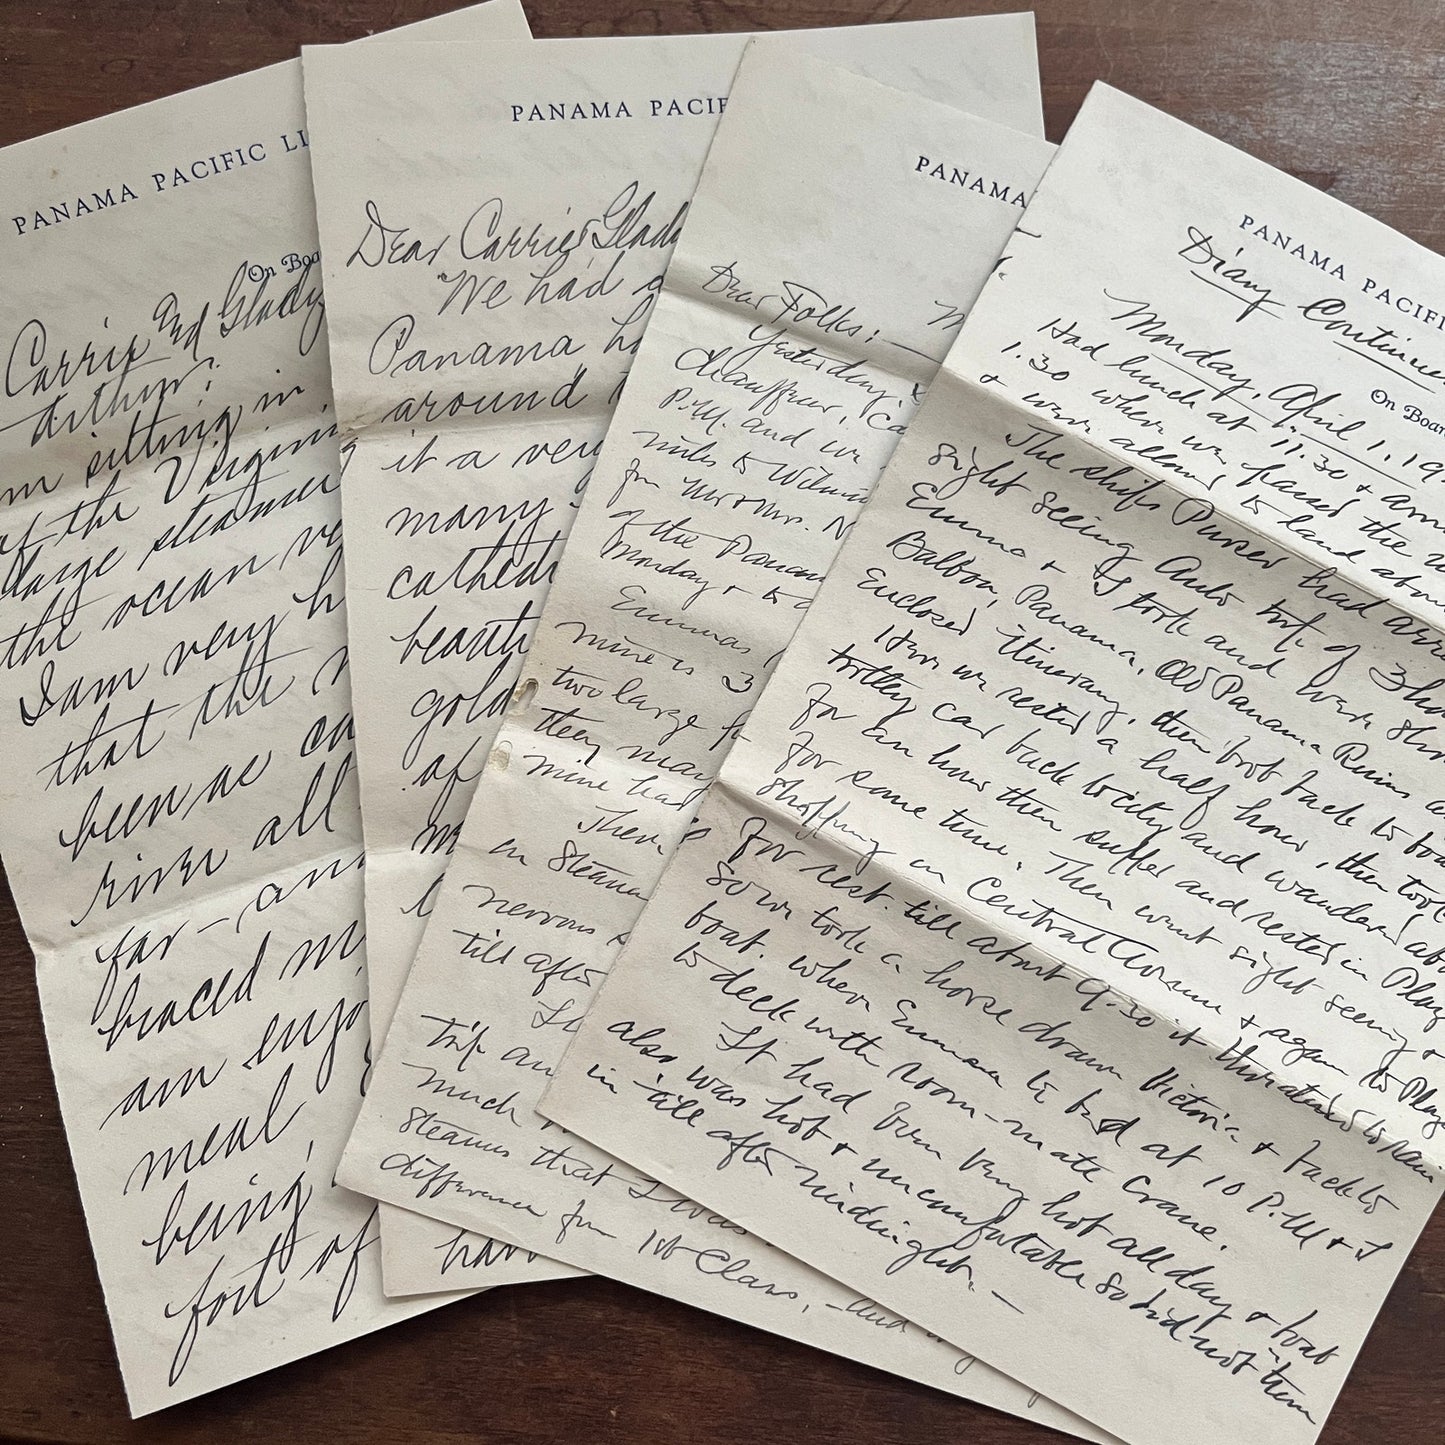 PANAMA PACIFIC
On Boa
Carrie Ed Gladys
Arthur:
sitting in
of the Virgini
large steamer
the ocean
I am very
that the
been as
river all
far - 
braced
am enjo
meal
being,
fort of
PANAMA PACIF
Dear Carrie, Glad
"We had
Panama
around
it a very
many
cathed
beauti
gold
of
PANAMA
Dear Folks:
Yesterday,
Chauffeur,
P.M. and we
miles to Wilmin
for Mr & Mrs. N
of the Panam
Monday & to
Emmas
mine is 3
two large
they may
mine has
Then
on Steame
nervous &
till after
trip an
much
Steamer that I was
difference for 1st Class, - and
PANAMA PACIFI
Diary Continue
On Boar
Monday, April 1, 19
Had lunch at 11.30 &
1.30 when we passed the
& were allowed to land abou
The ships Purser had arr
sight seeing Auto trip of 3 ho
Emma & I took and were
Balboa, Panama, Old Panama Ruins
Enclosed itinerary, then back to boa
Here we rested a half hour, then took
trolley car back to city and wandered abo
for an hour then supper and rested in Plaz
for some time. Then went sight seeing &
shopping on Central Avenue & again to Plaz
for rest till about 9.30 it threatened to rain
so we took a horse drawn Victoria & back to
boat. where Emma to bed at 10 P.M & I
to deck with room-mate Crane.
It had been very hot all day & boat
also was hot & uncomfortable so did not turn
in till after midnight. -